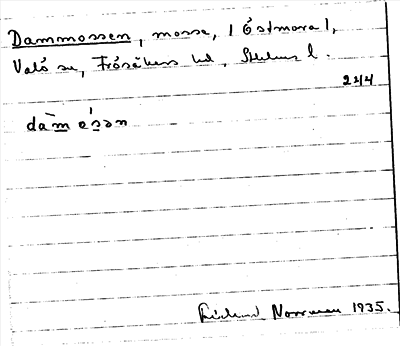 Dammossen, mosse, | Östmora |,
Valö sn, Frösåkers hd, Sthlms l.
244
dàm ɷ́sən
Richard Norrman 1935.